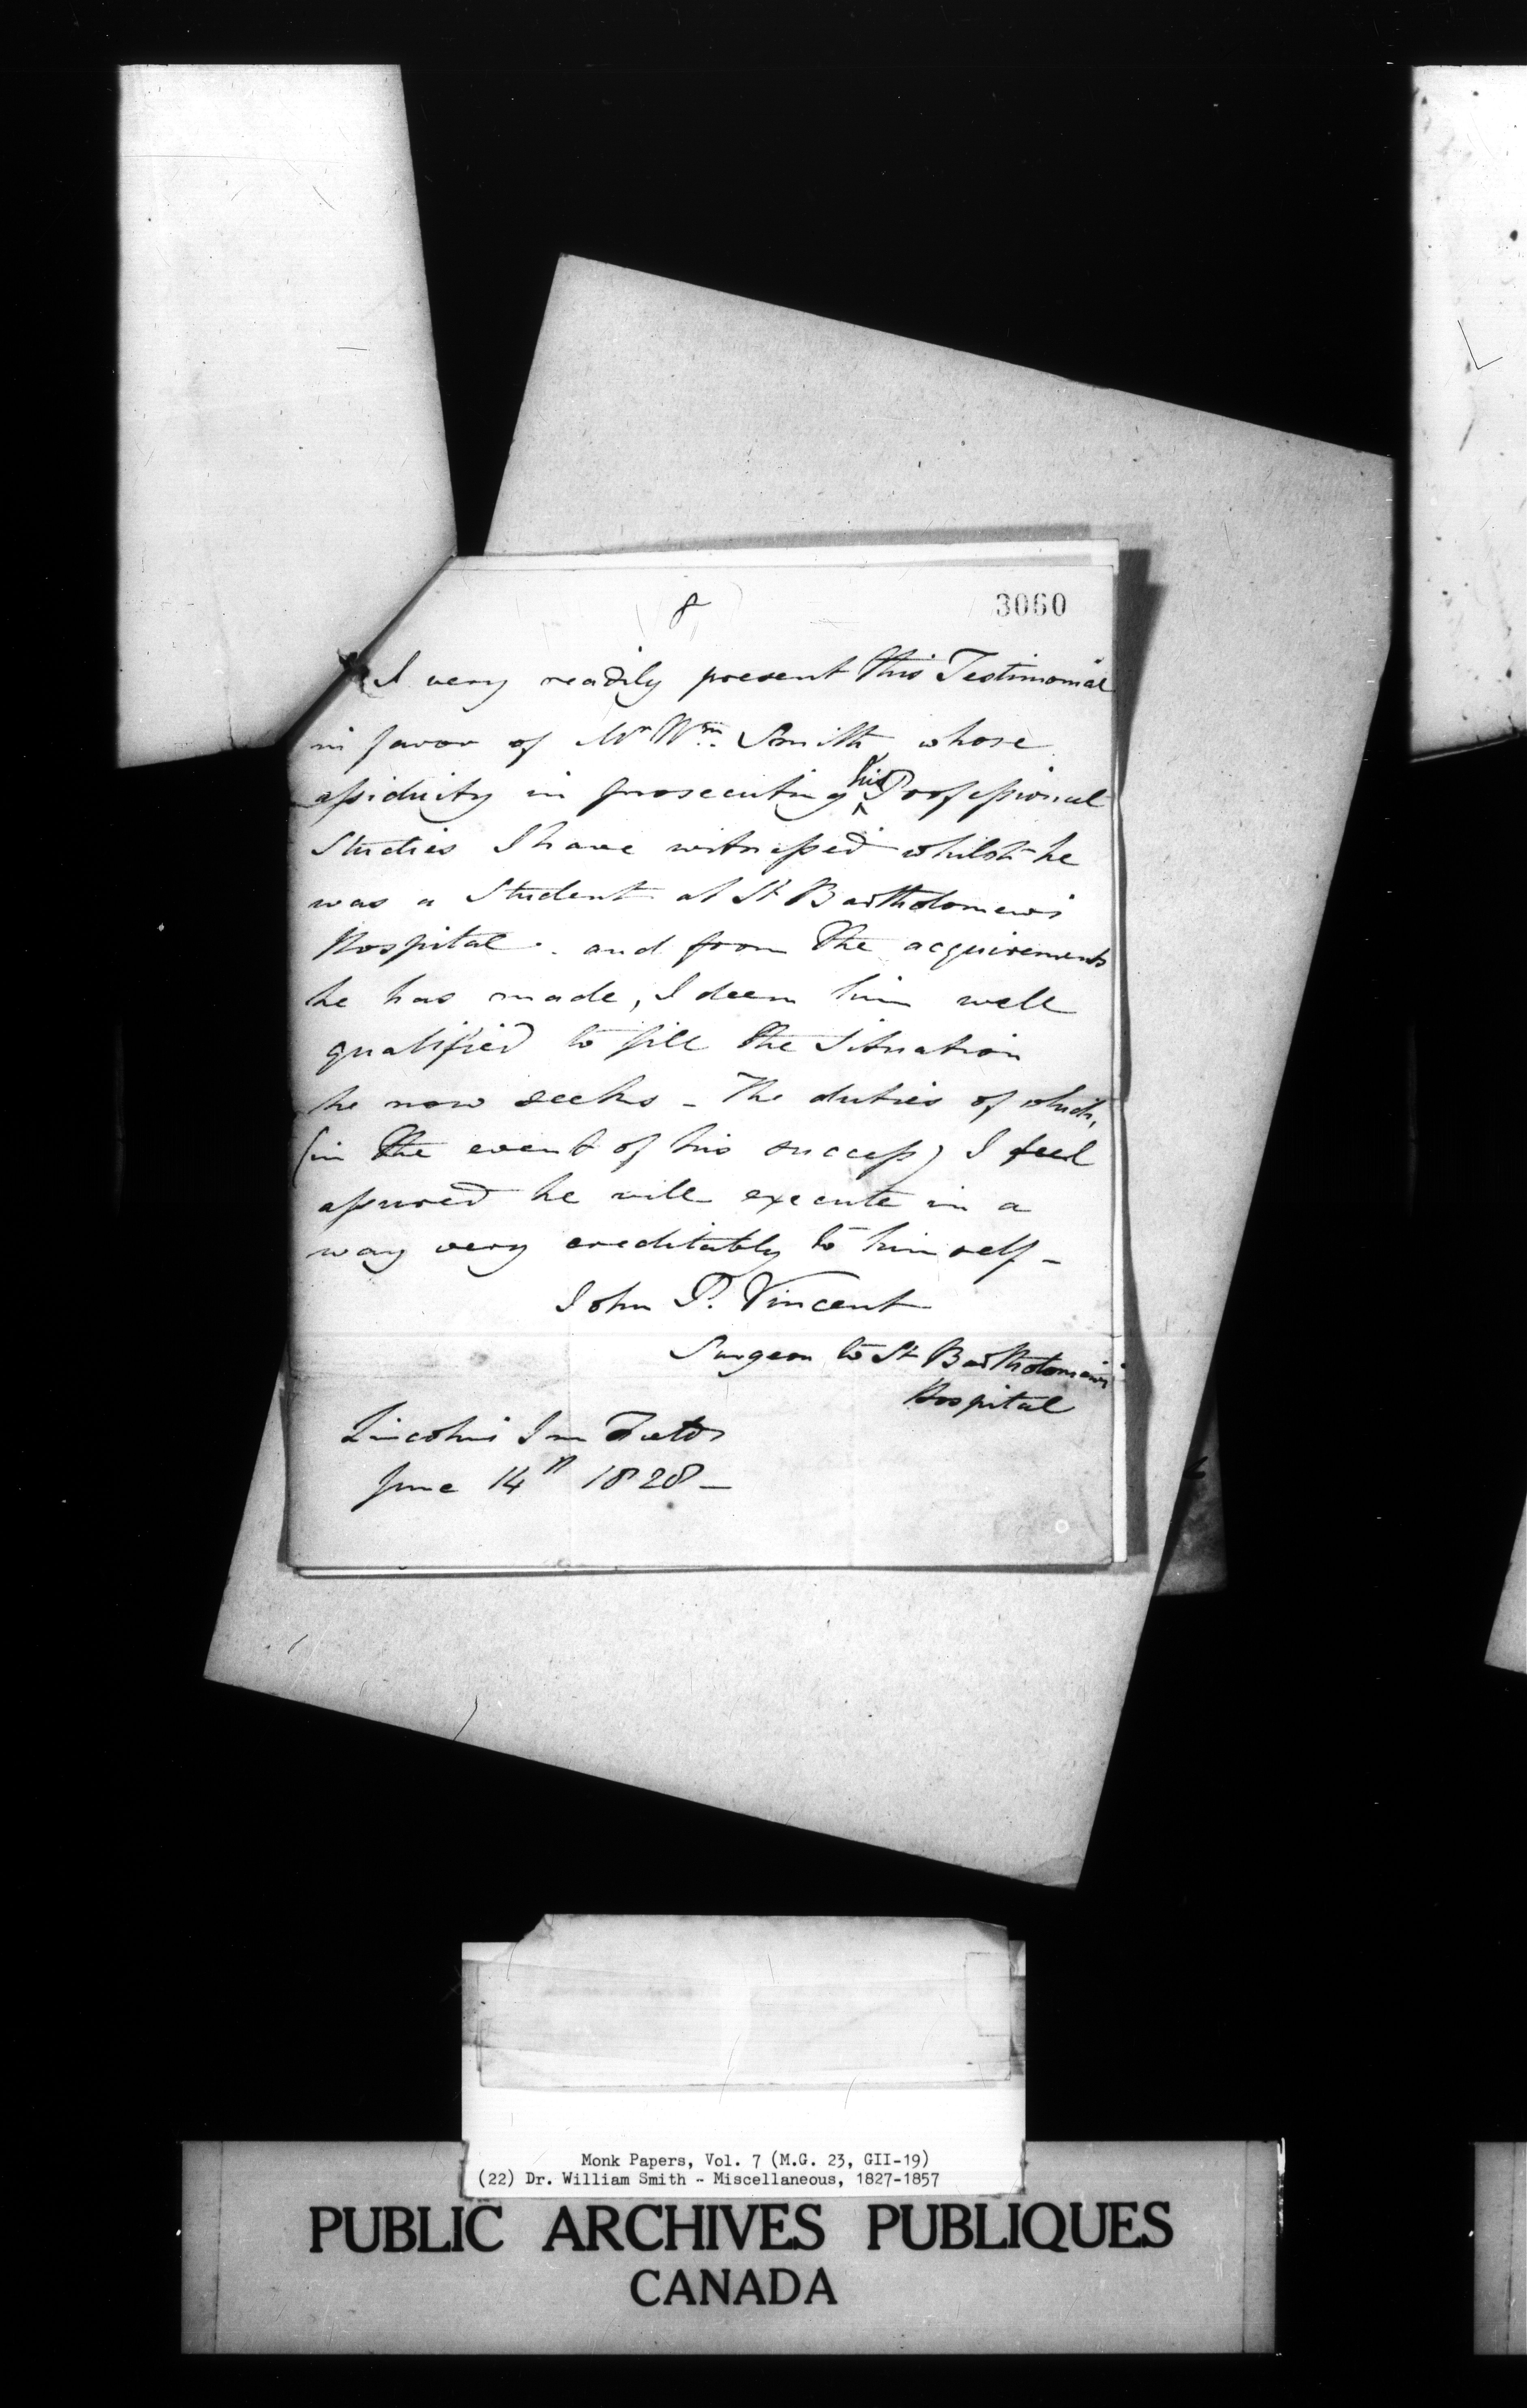 8
3060
I very readily present this Testimonial
in favor of Mr Wm. Smith whose
assiduity in prosecuting his Professional
Studies I have witnessed whilst he
was a Student at St Bartholomews
Hospital. and from the acquirements
he has made, I deem him well
qualified to fill the Situation
he now seeks - The duties of which,
(in the event of his success) I feel
assured he will execute in a
way very creditably to himself -
John P. Vincent
Surgeon to St Bartholomews
Hospital
Lincolns Inn Fields
June 14th 1828 -
Monk Papers, Vol. 7 (M.G. 23, GII-19)
(22) Dr. William Smith - Miscellaneous, 1827-1857
PUBLIC ARCHIVES PUBLIQUES
CANADA